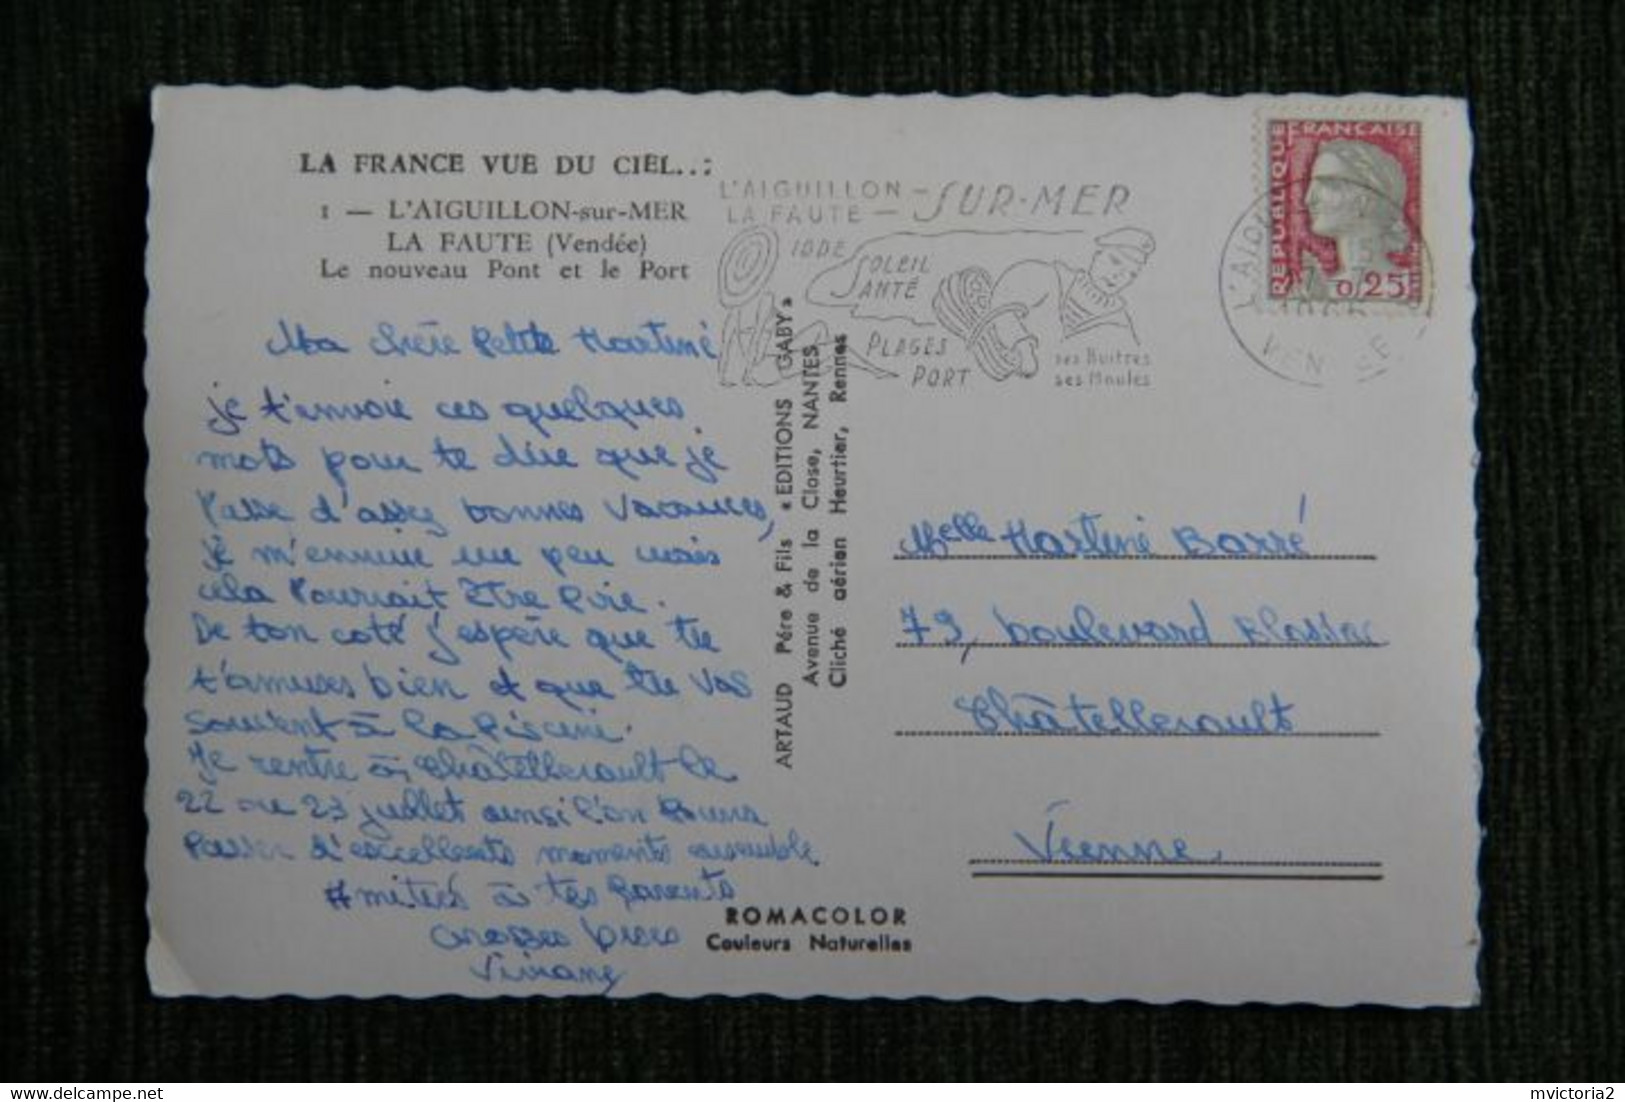 LA FRANCE VUE DU CIEL..:
1 — L'AIGUILLON-sur-MER
LA FAUTE (Vendée)
Le nouveau Pont et le Port
Ma chère Petite Martine
je t'envoie ces quelques
mots pour te dire que je
Passe d'assez bonnes vacances,
je m'ennuie un peu mais
cela Pourrait être Pire.
De ton coté j'espère que tu
t'amuses bien et que tu vas
souvent à la Piscine.
Je rentre à Châtellerault le
22 ou 23 juillet ainsi l'on Pourra
Passer d'excellents moments ensemble
Amitiés à tes Parents
Grosses bises
Viviane
L'AIGUILLON -
LA FAUTE - SUR-MER
IODE
SOLEIL
SANTÉ
PLAGES
PORT
ses Huitres
ses Moules
REPUBLIQUE FRANÇAISE
0,25
L'AIGUILLON
VENDEE
ARTAUD Père & Fils « EDITIONS GABY »
Avenue de la Close, NANTES
Cliché aérien Heurtier, Rennes
Melle Martine Barré
79, boulevard Blossac
Châtellerault
Vienne
ROMACOLOR
Couleurs Naturelles
mvictoria2